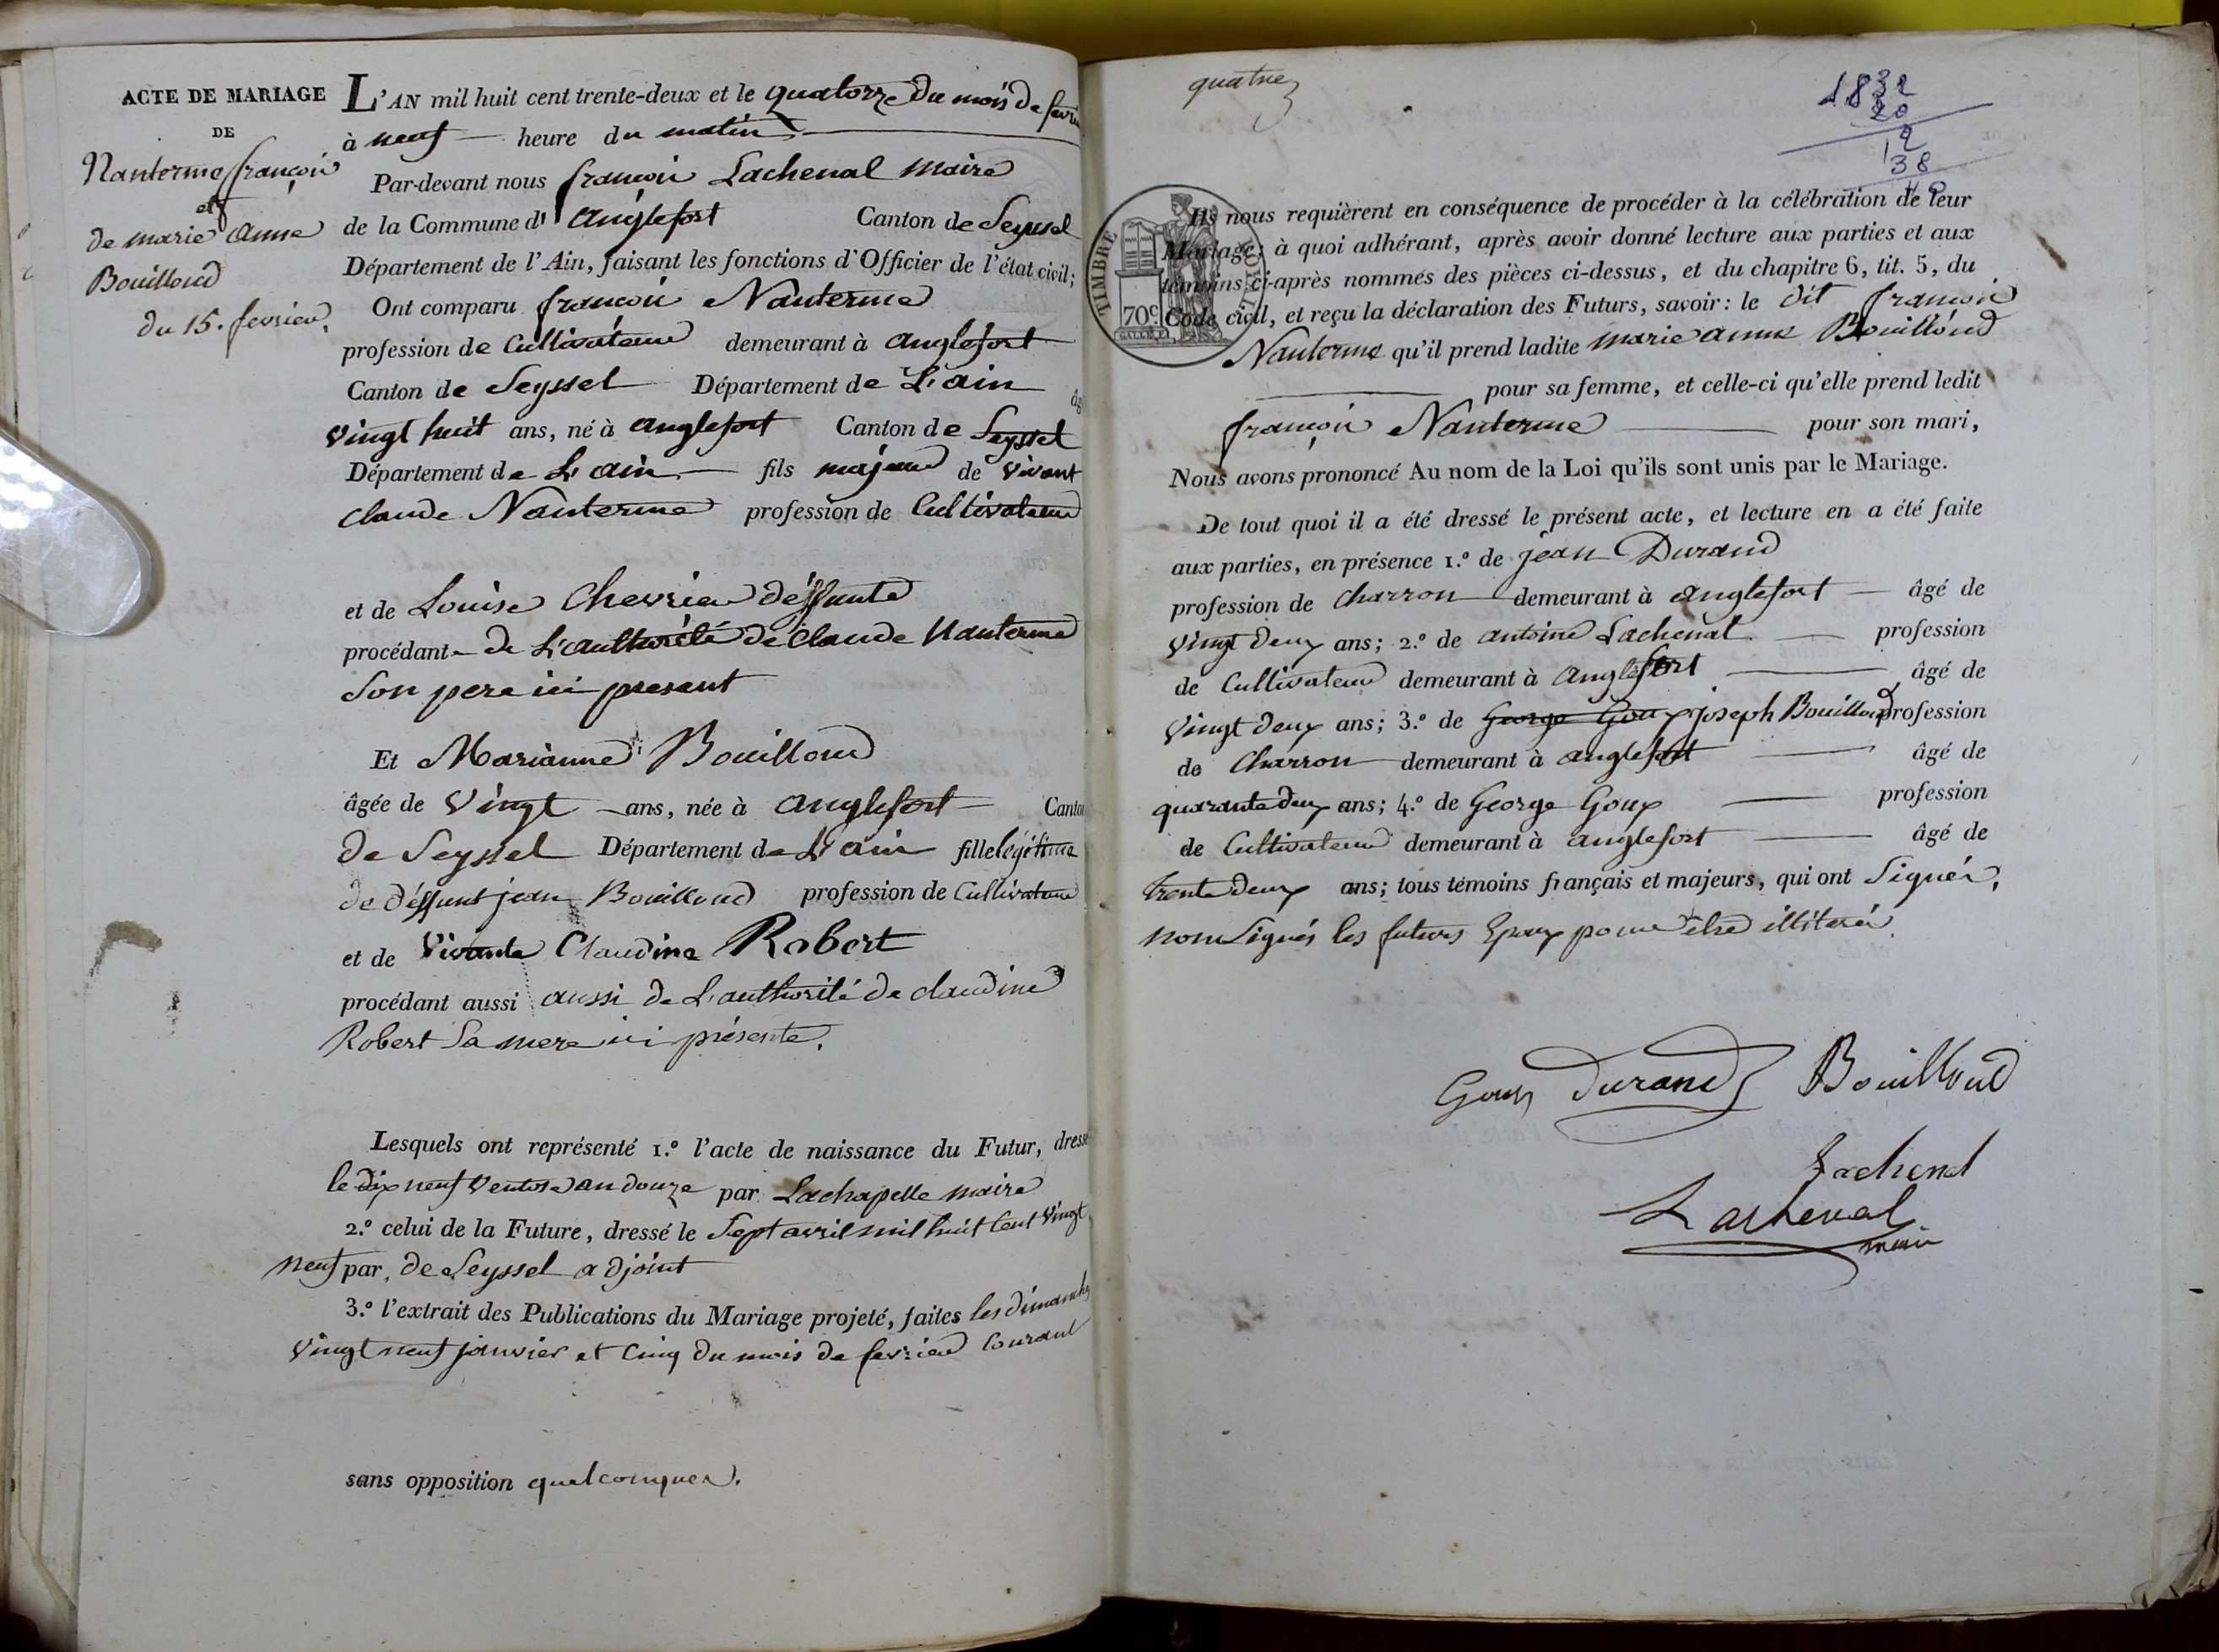 ACTE DE MARIAGE
DE
Nanterme françois
et
de marie anne
Bouilloud
du 15. fevrier.
L'AN mil huit cent trente-deux et le quatorze du mois de fevrier
à neuf heure du matin
Par-devant nous françois Lachenal maire
de la Commune d' anglefort Canton de Seyssel
Département de l'Ain, faisant les fonctions d'Officier de l'état civil;
Ont comparu françois Nanterme
profession de Cultivateur demeurant à anglefort
Canton de Seyssel Département de L'ain âg
vingt huit ans, né à anglefort Canton de Seyssel
Département de L'ain fils majeur de vivant
claude Nanterme profession de Cultivateur
et de Louise Chevrier déffunte
procédant de L'authorité de claude Nanterme
Son pere ici present
Et Marianne Bouilloud
âgée de vingt ans, née à anglefort Canton
de Seyssel Département de L'ain fille légitime
de déffunt jean Bouilloud profession de Cultivateur
et de vivante Claudine Robert
procédant aussi aussi de L'authorité de claudine
Robert Sa mere ici présente.
Lesquels ont représenté 1.º l'acte de naissance du Futur, dressé
le dix neuf ventose an douze par Lachapelle maire
2.º celui de la Future, dressé le Sept avril mil huit Cent vingt
neuf par, de Seyssel adjoint
3.º l'extrait des Publications du Mariage projeté, faites les dimanches
vingt neuf janvier et Cinq du mois de fevrier Courant
sans opposition quelconques.
quatre
1832
20
12
38
TIMBRE ROYAL
70c
Ils nous requièrent en conséquence de procéder à la célébration de leur
Mariage; à quoi adhérant, après avoir donné lecture aux parties et aux
témoins ci-après nommés des pièces ci-dessus, et du chapitre 6, tit. 5, du
Code civil, et reçu la déclaration des Futurs, savoir: le dit françois
Nanterme qu'il prend ladite marie anne Bouilloud
pour sa femme, et celle-ci qu'elle prend ledit
françois Nanterme pour son mari,
Nous avons prononcé Au nom de la Loi qu'ils sont unis par le Mariage.
De tout quoi il a été dressé le présent acte, et lecture en a été faite
aux parties, en présence 1.º de jean Durand
profession de Charron demeurant à anglefort âgé de
vingt deux ans; 2.º de antoine Lachenal profession
de Cultivateur demeurant à anglefort âgé de
vingt deux ans; 3.º de George Goux joseph Bouilloud profession
de Charron demeurant à anglefort âgé de
quarante deux ans; 4.º de George Goux profession
de Cultivateur demeurant à anglefort âgé de
trente deux ans; tous témoins français et majeurs, qui ont Signés,
non Signés les futurs Epoux pour etre illiterés.
Goux Durand Bouilloud
Lachenal
Lachenal
maire